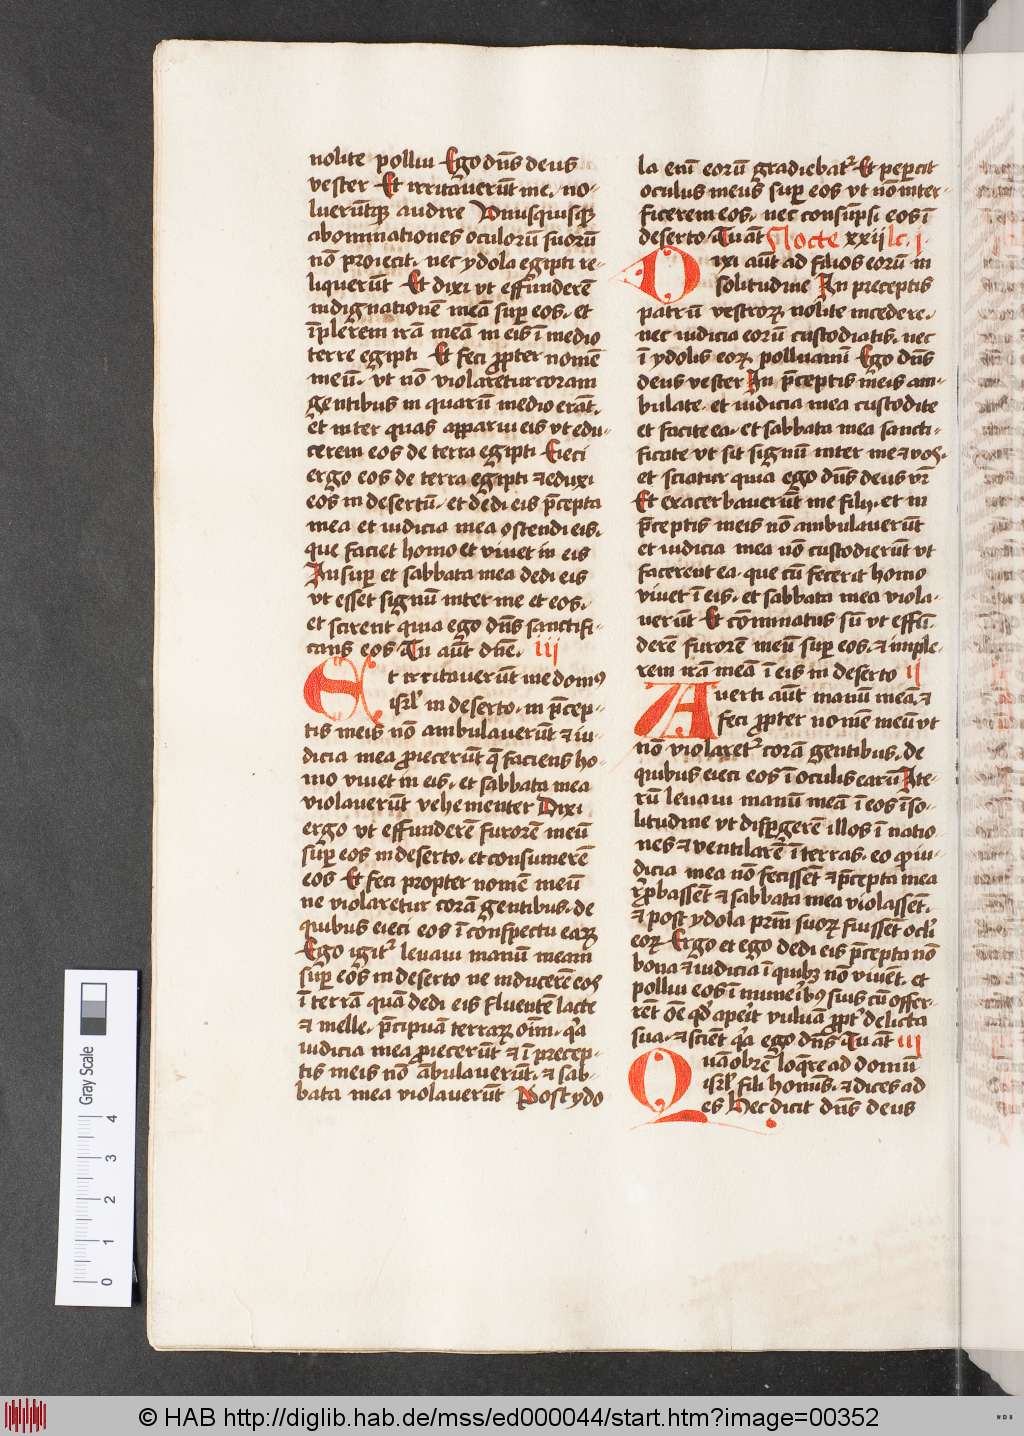 nolite pollui Ego dn̄s deus
vester Et irritaverūt me · no-
luerūtqꝫ audire Vnusquisqꝫ
abominationes oculorū suorū
nō proiecit · nec ydola egipti re-
liquerūt Et dixi vt effunderē
indignationē meā suꝑ eos · et
īplerem irā meā in eis ī medio
terre egipti Et feci ꝓpter nomē
meū · vt nō violaretur coram
gentibus in quarū medio erāt ·
et inter quas apparui eis vt edu-
cerem eos de terra egipti Eieci
ergo eos de terra egipti ⁊ eduxi
eos in desertū · et dedi eis p̄cepta
mea et iudicia mea ostendi eis ·
que faciet homo et vivet in eis
Insuꝑ et sabbata mea dedi eis
vt esset signū inter me et eos ·
et scirent quia ego dn̄s sanctifi-
cans eos Tu aūt dn̄e · iii
Et irritaverūt me domꝰ
isrl̄ in deserto · in p̄cep-
tis meis nō ambulaverūt ⁊ iu-
dicia mea ꝓiecerūt q̄ faciens ho-
mo vivet in eis · et sabbata mea
violaverūt vehementer Dixi
ergo vt effunderē furorē meū
suꝑ eos in deserto · et consumerē
eos Et feci propter nomē meū
ne violaretur corā gentibus · de
quibus eieci eos ī conspectu earꝝ
Ego igit᷑ levavi manū meam
suꝑ eos in deserto ne inducerē eos
ī terrā quā dedi eis fluentē lacte
⁊ melle · p̄cipuā terrarꝝ oīm · qͣa
iudicia mea ꝓiecerūt ⁊ ī precep-
tis meis nō ābulaverūt · ⁊ sab-
bata mea violaverūt Post ydo
la enī eorū gradiebat᷑ Et peꝑcit
oculus meus suꝑ eos vt nō inter-
ficerem eos · nec consūpsi eos ī
deserto · Tu aūt Nocte xxii lc · i ·
Dixi aūt ad filios eorū in
solitudine In preceptis
patrū vestrorꝝ nolite incedere ·
nec iudicia eorū custodiatis · nec
ī ydolis eorꝝ polluamī Ego dn̄s
deus vester In p̄ceptis meis am-
bulate · et iudicia mea custodite
et facite ea · et sabbata mea sancti-
ficate vt sit signū inter me ⁊ vos ·
et sciatur quia ego dn̄s deus vr̄
Et exacerbaverūt me filij · et in
p̄ceptis meis nō ambulaverūt
et iudicia mea nō custodierūt vt
facerent ea · que cū fecerit homo
vivet ī eis · et sabbata mea viola-
verūt Et cōminatus sū vt effū-
derē furorē meū suꝑ eos · ⁊ imple-
rem irā meā ī eis in deserto ii
Averti aūt manū meā · ⁊
feci ꝓpter nomē meū vt
nō violaret᷑ corā gentibus · de
quibus eieci eos ī oculis earū Ite-
rū levavi manū meā ī eos ī so-
litudine vt disꝑgerē illos ī natio-
nes ⁊ ventilarē ī terras · eo ꝙ iu-
dicia mea nō fecissēt ⁊ p̄cepta mea
reꝓbassēt ⁊ sabbata mea violassēt ·
⁊ post ydola prm̄ suorꝝ fuissēt ocl̓i
eorꝝ Ergo et ego dedi eis p̄cepta nō
bona ⁊ iudicia ī quibꝫ nō vivēt · et
pollui eos ī munerībꝰ suis cū offer-
rēt oē qd̓ aꝑit vulvā ꝓpt᷑ delicta
sua · ⁊ sciēt qͣa ego dn̄s Tu aūt iii
Quāobrē loq̄re ad domū
isrl̄ fili homīs · ⁊ dices ad
es Hec dicit dn̄s deus
Gray Scale
0 1 2 3 4
© HAB http://diglib.hab.de/mss/ed000044/start.htm?image=00352